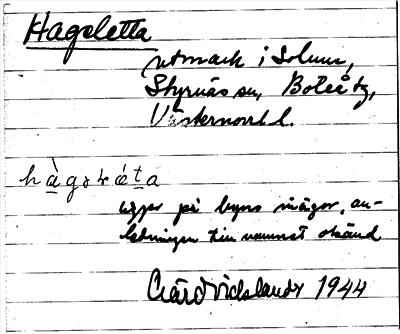 Hageletta
utmark i Solum,
Styrnäs sn, Boteå tg,
Västernorrl l.
hàgsɤéta
ligger på byns mågor, an-
ledningen till namnet okänd
Gård Vidslander 1944